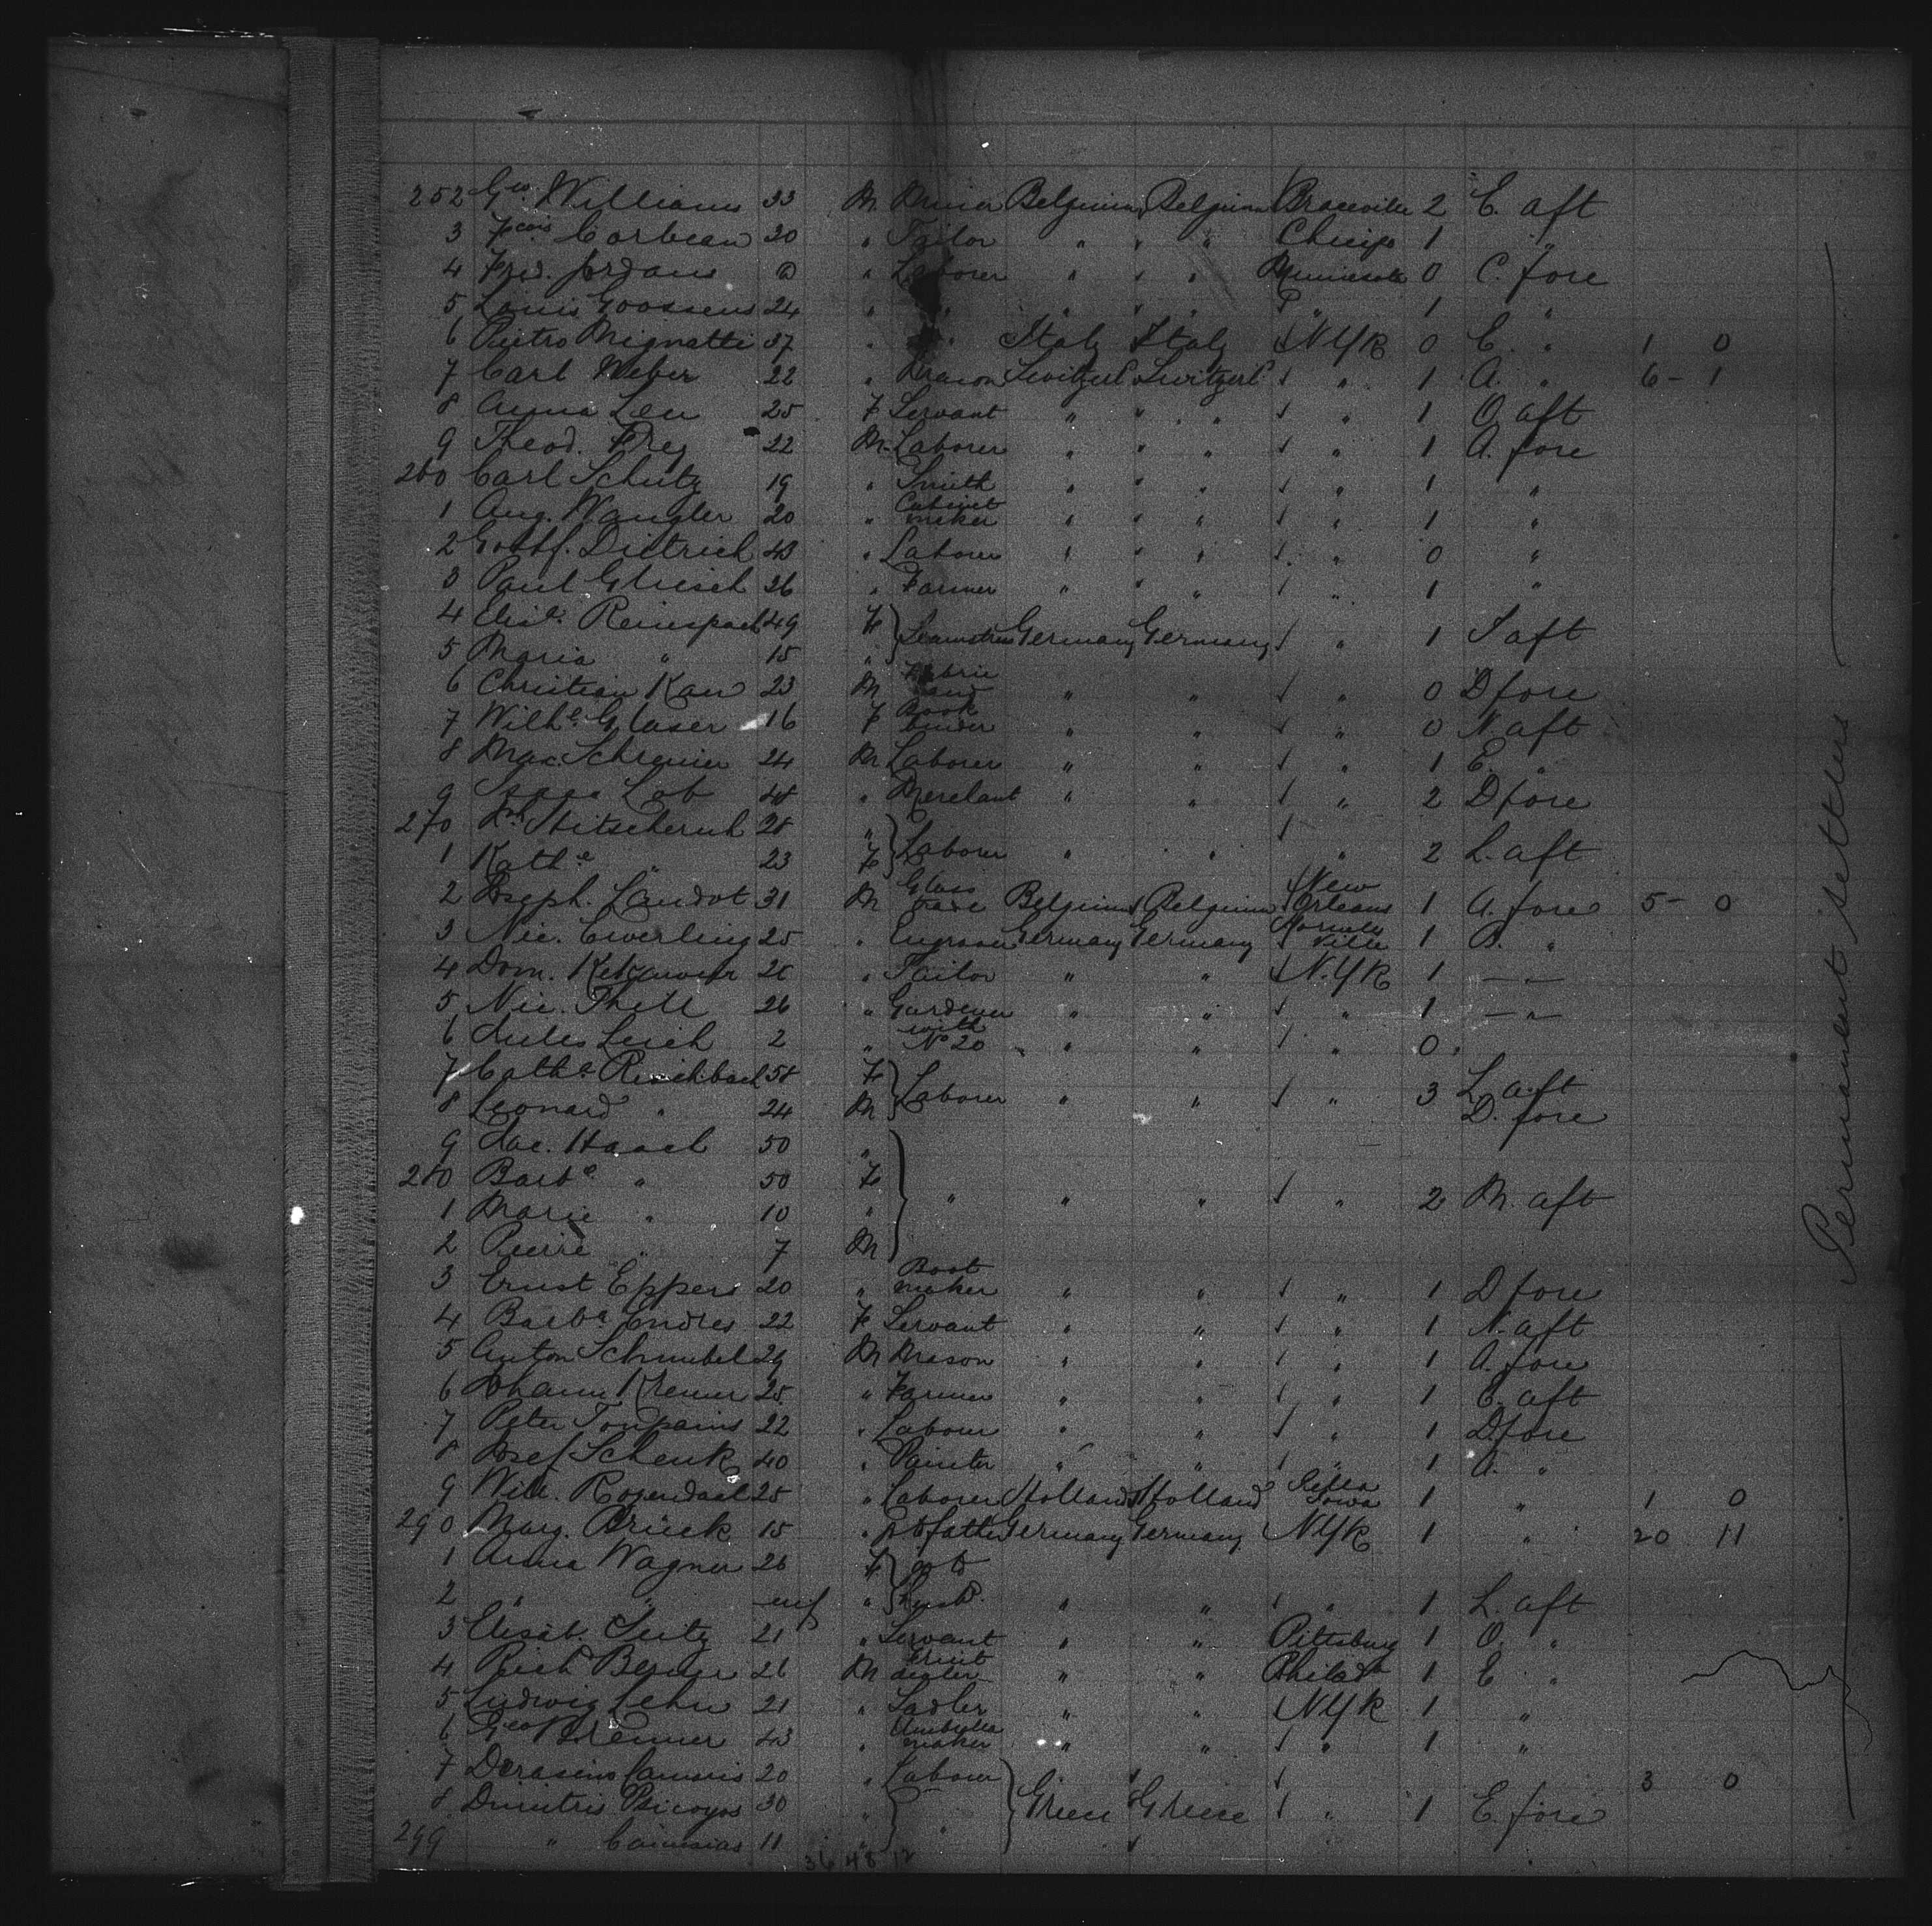 252 Geo. Williams 33 M Miner Belgium Belgium Braceville 2 E. aft
3 Fcois Corbeau 30 " Tailor " " " Chicago 1 "
4 Fred. Jordans " Laborer " " " Minnesota 0 C. fore
5 Louis Goossens 24 " " " " " " 1 "
6 Pietro Mignatti 37 " " Italy Italy N Yk 0 E. " 1 0
7 Carl Weber 22 " Mason Switzerl Switzerl " 1 A. " 6 - 1
8 Anna Leu 25 F Servant " " " " 1 O. aft
9 Theod. Frey 22 M Laborer " " " " 1 A. fore
260 Carl Schutz 19 " Smith " " " " 1 "
1 Aug. Wangler 20 " Cabinet maker " " " " 1 "
2 Gottf. Dietrich 43 " Laborer " " " " 0 "
3 Paul 26 " Farmer " " " " 1 "
4 Elise. Reinspach 49 F Seamstress Germany Germany " 1 J aft
5 Maria " 15 "
6 Christian Kau 23 M Fabric hand " " " 0 D fore
7 Wilhe. Glaser 16 F Book binder " " " 0 N aft
8 Max. Schreiner 24 M Laborer " " " 1 E. "
9 Lob 48 " Merchant " " " 2 D fore
270 28 "
1 Kathe " 23 F Laborer " " " 2 L. aft
2 Joseph. Landot 31 M Glass Belgium Belgium New Orleans 1 A. fore 5 - 0
3 Nic. Ewerling 25 " Engraver Germany Germany ville 1 B. "
4 Dom. 28 " Tailor " " N. Yk 1 — " —
5 Nic. Thill 26 " Gardener " " " 1 — " —
6 Jules Leich 2 " with No 20 " " " 0
7 Cathe Reichbach 58 F Laborer " " " 3 L. aft
8 Leonard " 24 M D. fore
9 Jac. Haach 50 "
280 Barbe " 50 F " " " " 2 M. aft
1 Marie " 10 "
2 Pierre " 7 M
3 Ernst Eppers 20 " Boot maker " " " 1 D fore
4 Barba Endres 22 F Servant " " " 1 N. aft
5 Anton Schnubel 29 M Mason " " " 1 A. fore
6 Johann Kremer 25 " Farmer " " " 1 E. aft
7 Peter 22 " Laborer " " " 1 D fore
8 Josef Schenk 40 " Painter " " " 1 A. "
9 Will. Rosendaal 25 " Laborer Holland Holland Pella Iowa 1 " 1 0
290 Marg. Brück 15 " to father Germany Germany N Yk 1 " 20 11
1 Anna Wagner 26 F to
2 " " inf " husbd. " " " 1 L. aft
3 Elisab. Seitz 21 " Servant " " Pittsburg 1 O. "
4 Richd 26 M Fruit dealer " " Philada 1 E "
5 Ludwig Lehn 21 " Sadler " " N Yk 1 "
6 Geo Brenner 43 " Umbrella maker " " " 1 "
7 20 " Laborer 3 0
8 Dimitris 30 " " Greece Greece " 1 E. fore
299 " 11 "
36 48 12
Permanent settlers